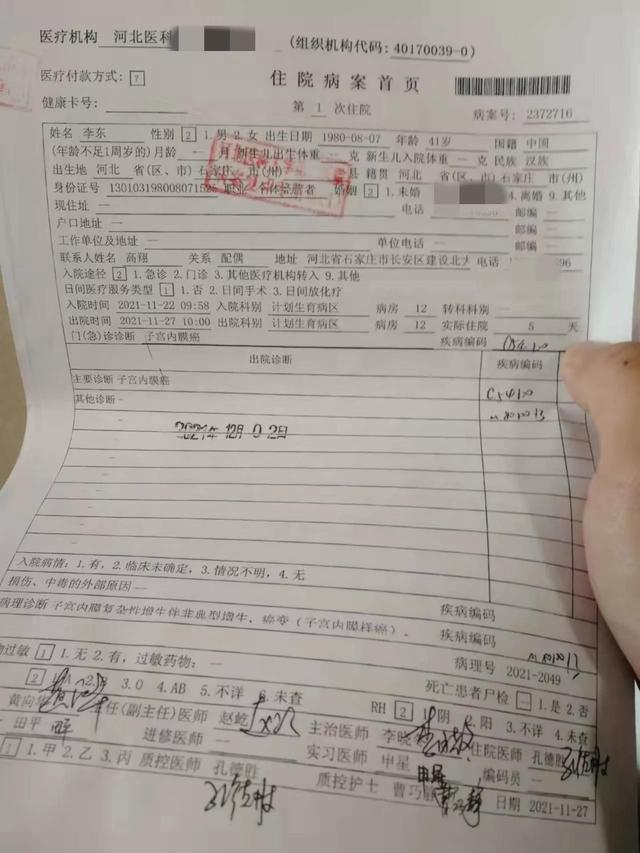 医疗机构 河北医科 (组织机构代码:40170039-0)
医疗付款方式:7 住院病案首页
健康卡号: 第 1 次住院 病案号: 2372716
姓名 李东 性别 2 1.男 2.女 出生日期 1980-08-07 年龄 41岁 国籍 中国
(年龄不足1周岁的)月龄 — 月 新生儿出生体重 — 克 新生儿入院体重 — 克 民族 汉族
出生地 河北 省(区、市)石家庄 市 县 籍贯 河北 省(区、市)石家庄 市(州)
身份证号 130103198008071525 职业 个体经营者 婚姻 2 1.未婚 4.离婚 9.其他
现住址 — 电话 邮编 —
户口地址 — 邮编 —
工作单位及地址 — 单位电话 — 邮编 —
联系人姓名 高翔 关系 配偶 地址 河北省石家庄市长安区建设北大 电话 96
入院途径 2 1.急诊 2.门诊 3.其他医疗机构转入 9.其他
日间医疗服务类型 1 1.否 2.日间手术 3.日间放化疗
入院时间 2021-11-22 09:58 入院科别 计划生育病区 病房 12 转科科别 —
出院时间 2021-11-27 10:00 出院科别 计划生育病区 病房 12 实际住院 5 天
门(急)诊诊断 子宫内膜癌 疾病编码
出院诊断 疾病编码
主要诊断 子宫内膜癌
其他诊断 —
2021年 12月 02日
入院病情: 1.有, 2.临床未确定, 3.情况不明, 4.无
损伤、中毒的外部原因 — 疾病编码
病理诊断 子宫内膜复杂性增生伴非典型增生, 癌变(子宫内膜样癌). 疾病编码
病理号 2021-2049
物过敏 1 1.无 2.有, 过敏药物: — 死亡患者尸检 — 1.是 2.否
3.O 4.AB 5.不详 6.未查 RH 2 1.阴 2.阳 3.不详 4.未查
黄向华 主任(副主任)医师 赵屹 主治医师 李晓 住院医师 孔德胜
田平 进修医师 — 实习医师 申星 编码员 —
1 1.甲 2.乙 3.丙 质控医师 孔德胜 质控护士 曹巧 日期 2021-11-27